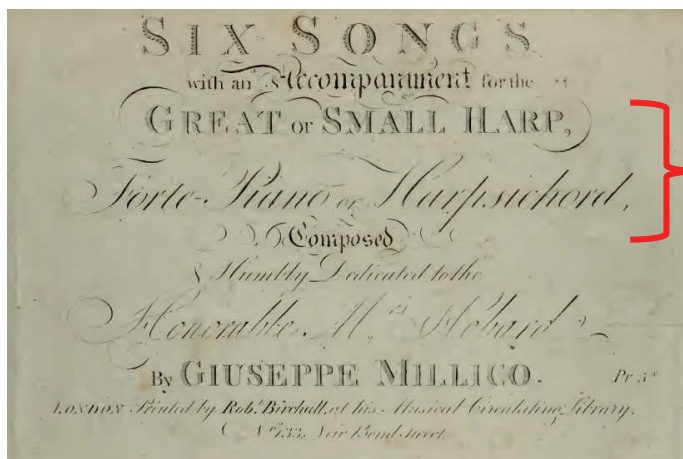 SIX SONGS
with an Accompaniment for the
GREAT or SMALL HARP,
Forte-Piano or Harpsichord,
Composed
& Humbly Dedicated to the
Honorable Mrs Hobard
By GIUSEPPE MILLICO. Pr 5s
LONDON Printed by Robt. Birchall, at his Musical Circulating Library,
No 133, New Bond Street.